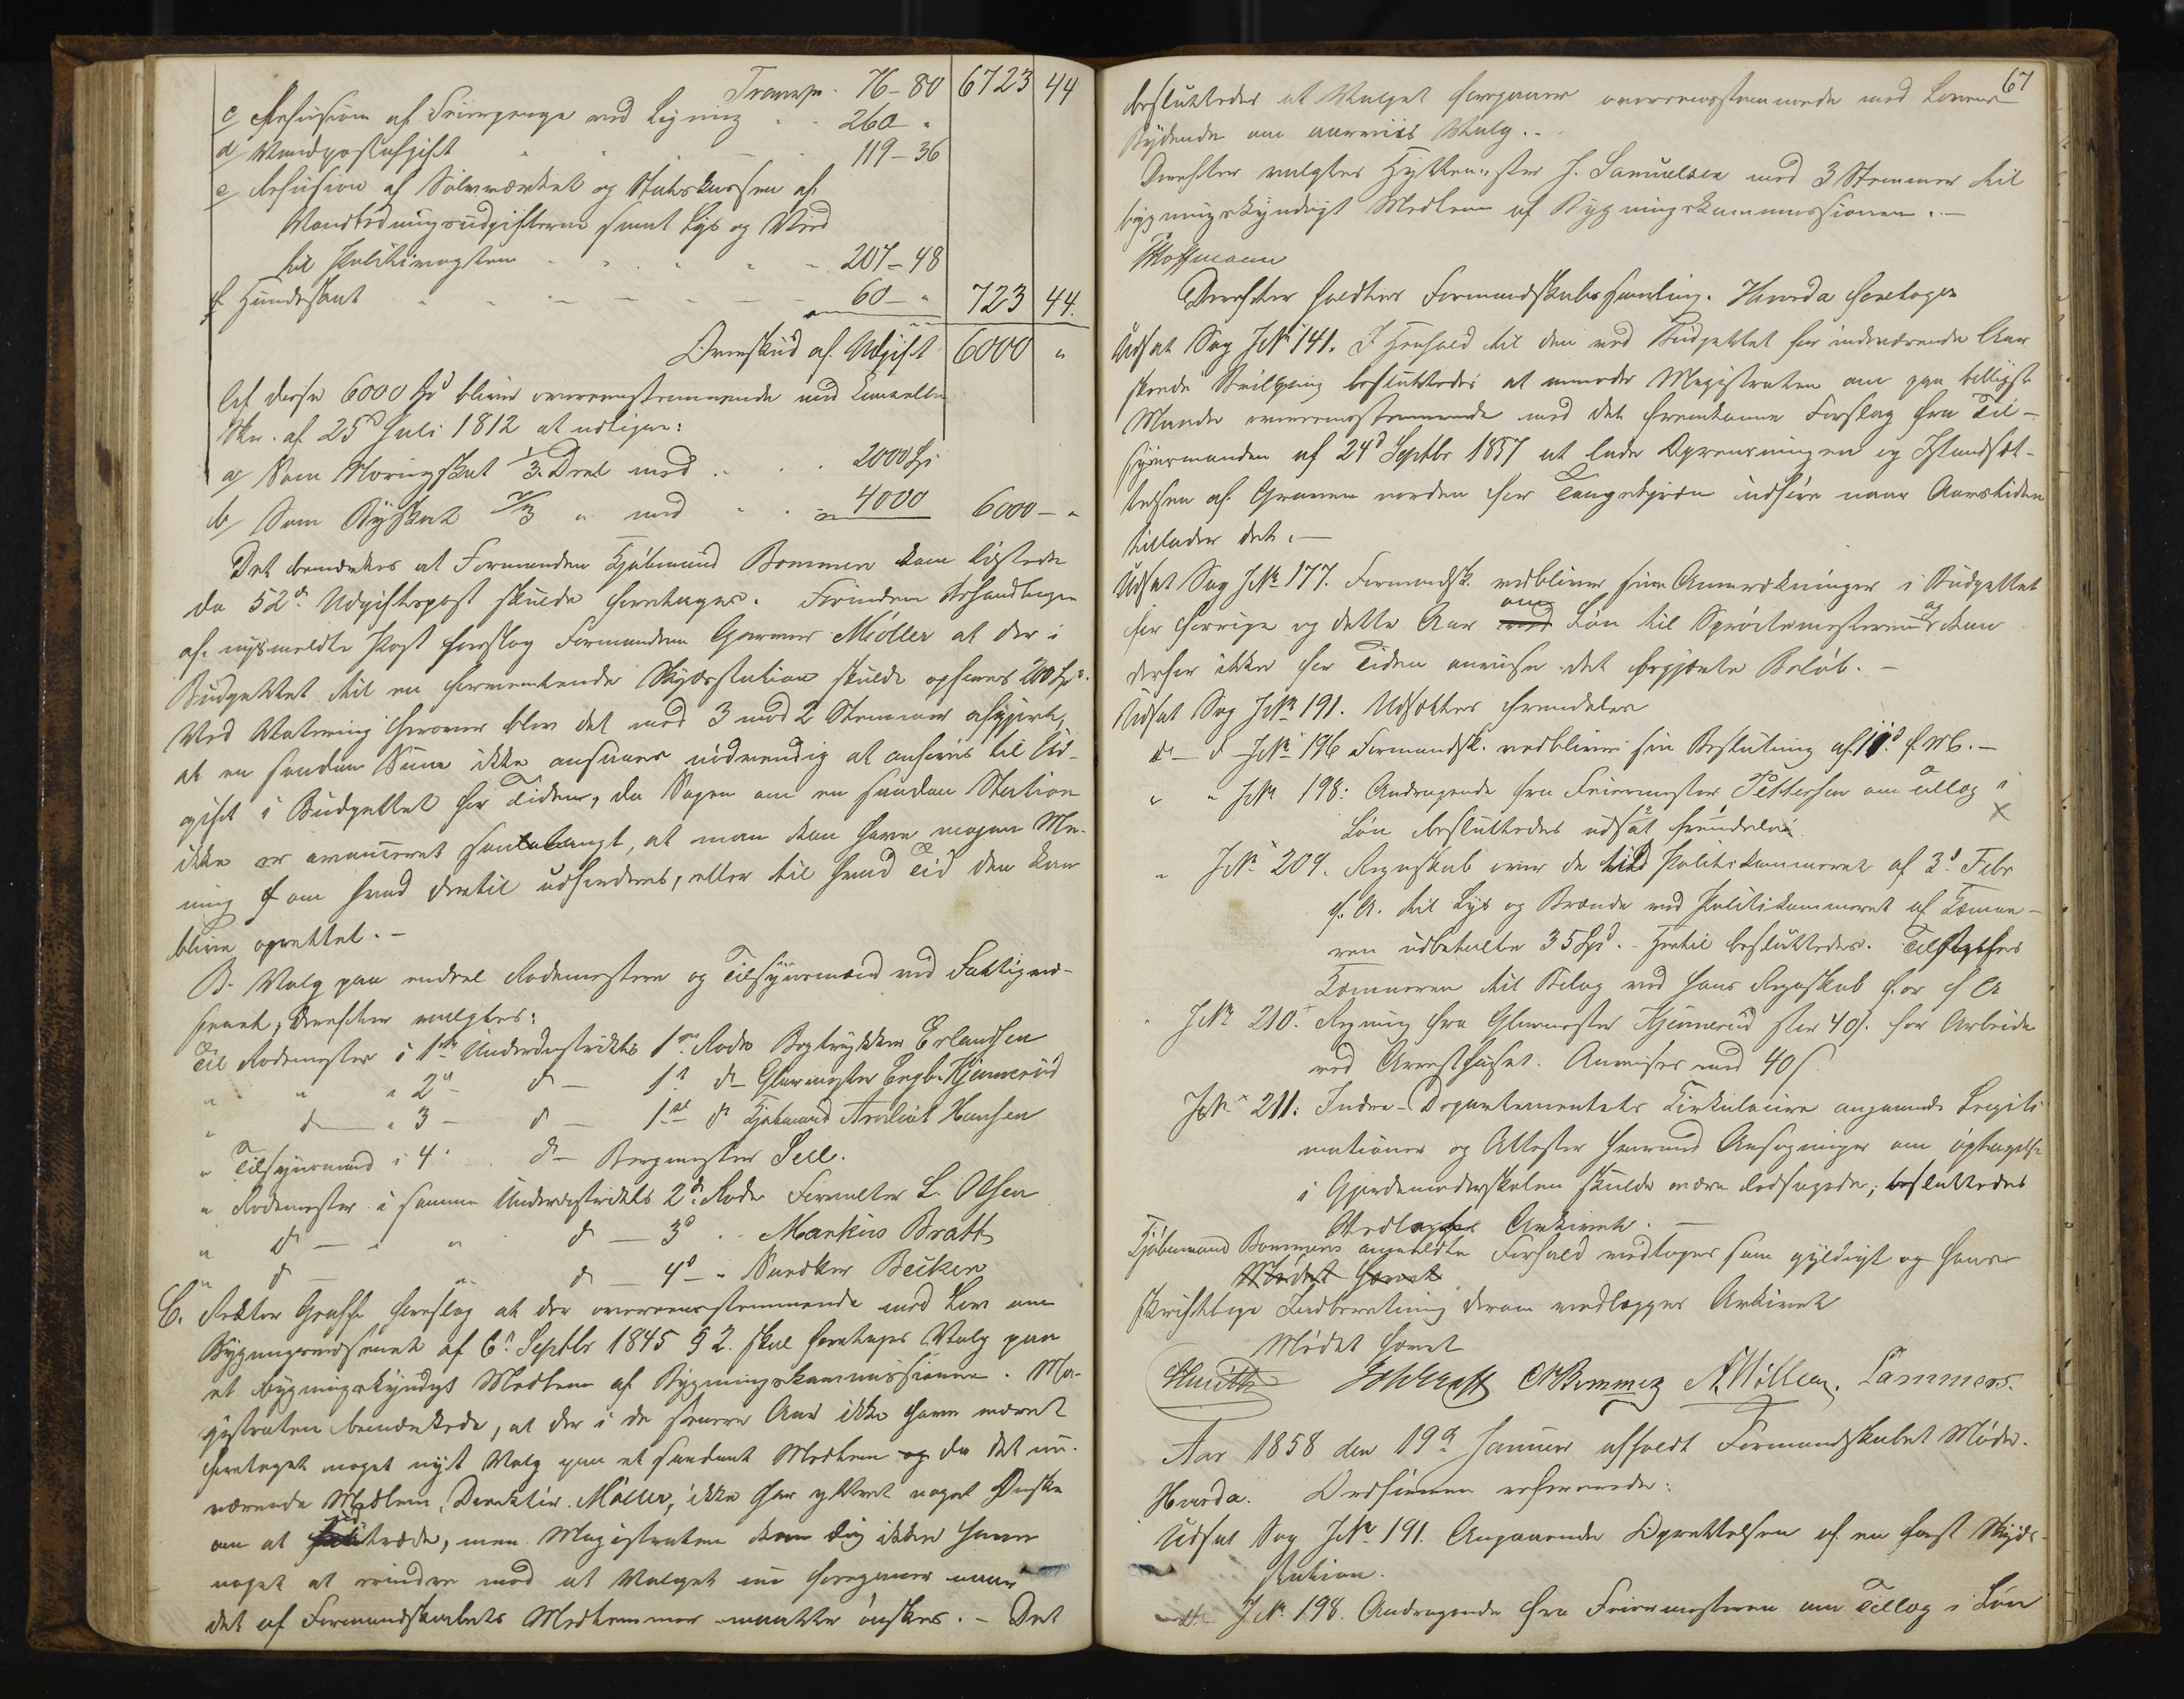 Transp. 76-80 | 6723 | 44
c/ Refusion af Feierpenge ved Ligning 260 "
d/ Vandpostafgift 119-36
e/ Refusion af Sølvværket og Statskassen af
Vandledningsudgifterne samt Lys og Ved
til Politivagten 207-48
f. Hundeskat 60 - " | 723 | 44.
Overskud af Udgift 6000 "
Af disse 6000 Spd bliver overeensstemmende med Cancellie
Skr. af 25d Juli 1812 at udligne:
a/ Som Næringsskat 1/3 Deel med 2000 Spd
b/ Som Byskat 2/3 " med 4000 6000 - "
Det bemærkes at Formanden Kjøbmand Bommen kom tilstede
da 52d Udgiftspost skulde foretages. Forinden Behandlingen
af nysmeldte Post foreslog Formanden Garver Møller at der i
Budgettet til en forventende Skydsstation skulde opføres 200 Spd.
Ved Votering herover blev det med 3 mod 2 Stemmer afgjort,
at en saadan Sum ikke ansaaes nødvendig at anføres til Ud-
gift i Budgettet for Tiden, da Sagen om en saadan Station
ikke er avanceret saalangt, at man kan have nogen Me-
ning om hvad dertil udfordres, eller til hvad Tid den kan
blive oprettet. -
B. Valg paa endeel Rodemestere og Tilsynsmænd ved Fattigvæ-
senet, hvorefter valgtes:
Til Rodemester i 1ste Underdistrikts 1ste Rode Bogtrykker Erlandsen
" " " 2d - d - 1st d - Glarmester Engb. Kjennerud
" d - " 3 - d - 1st d Kjøbmand Hansen
" Tilsynsmand i 4. d - Bergmester Sell.
" Rodemester i samme Underdistrikts 2d Rode Forvalter L. Olsen
" d - " " d - 3d .. Markus Bratt
" d - " d - 4d - " Snedker Becken
C. Rektor Graff foreslog at der overeensstemmende med Lov om
Bygningsvæsenet af 6d Septbr 1845 § 2. skal foretages Valg paa
et bygningskyndigt Medlem af Bygningskommissionen. Ma-
gistraten bemærkede, at der i de senere Aar ikke have været
foretaget noget nyt Valg paa et saadant Medlem og da det nu-
værende Medlem, Direktør Møller, ikke har yttret noget Ønske
om at udtræde, men Magistraten kan dog ikke have
noget at erindre mod at Valget nu foregaaer naar
det af Formandskabets Medlemmer maatte ønskes. - Det
67
besluttedes at Valget foregaaer overeensstemmende med Lovens
Bydende om aarviis Valg. .
Derefter valgtes Hyttemester J. Samuelsen med 3 Stemmer til
bygningskyndigt Medlem af Bygningskommissionen. -
Hoffmann
Derefter holdtes Formandskabssamling. Hvorda foretages
Udsat Sag JNr 141. I Henhold til den ved Budgettet for indeværende Aar
skeede Bevilgning besluttedes at anmode Magistraten om paa billigste
Maade overeensstemmende med det fremkomne Forslag fra Til-
synsmanden af 24d Septbr 1857 at lade Oprensningen og Istandsæt-
telsen af Graven norden for udføre naar Aarstiden
tillader det. -
Udsat Sag JNr 177. Formandsk. vedbliver sine Anmærkninger i Budgettet
for forrige og dette Aar om Løn til Sprøitemesteren og kan
derfor ikke for Tiden anvise det begjærte Beløb. -
Udsat Sag JNr 191. Udsættes fremdeles
d - d JNr 196 Formandsk. vedbliver sin Beslutning af 11d f. M. -
" " JNr 198: Andragende fra Feiermester Pettersen om Tillæg i
Løn besluttedes udsat fremdeles. x
" JNr 209. Regnskab over de til Politikammeret af 3d Febr
f. A. til Lys og Brænde ved Politikammeret af Kæmne-
ren udbetalte 35 Spd. - Hertil besluttedes. Tilstilles
Kæmneren til Bilag ved hans Regnskab for f A
" JNr 210. Regning fra Glarmester Kjennerud stor 40 s. for Arbeide
ved Arresthuset. Anvises med 40 s
JNr 211: Indre-Departementets Cirkulaire angaaende Legiti
mationer og Attester hvormed Ansøgninger om Optagelse
i Gjordemoderskolen skulde være ledsagede; besluttedes
Vedlægges Arkivet. -
Kjøbmand Bommens anmeldte Forfald modtages som gyldigt og hans
Mødet hævet
skriftlige Indberetning derom vedlægges Arkivet
Mødet hævet
Smith Graff Bommen N. Möller. Lammers.
Aar 1858 den 19d Januar afholdt Formandskabet Møde.
Hvorda. Ordføreren refererede:
Udsat Sag JNr 191. Angaaende Oprettelsen af en fast Skyds-
station.
d - JNr 198. Andragende fra Feiermesteren om Tillæg i Løn